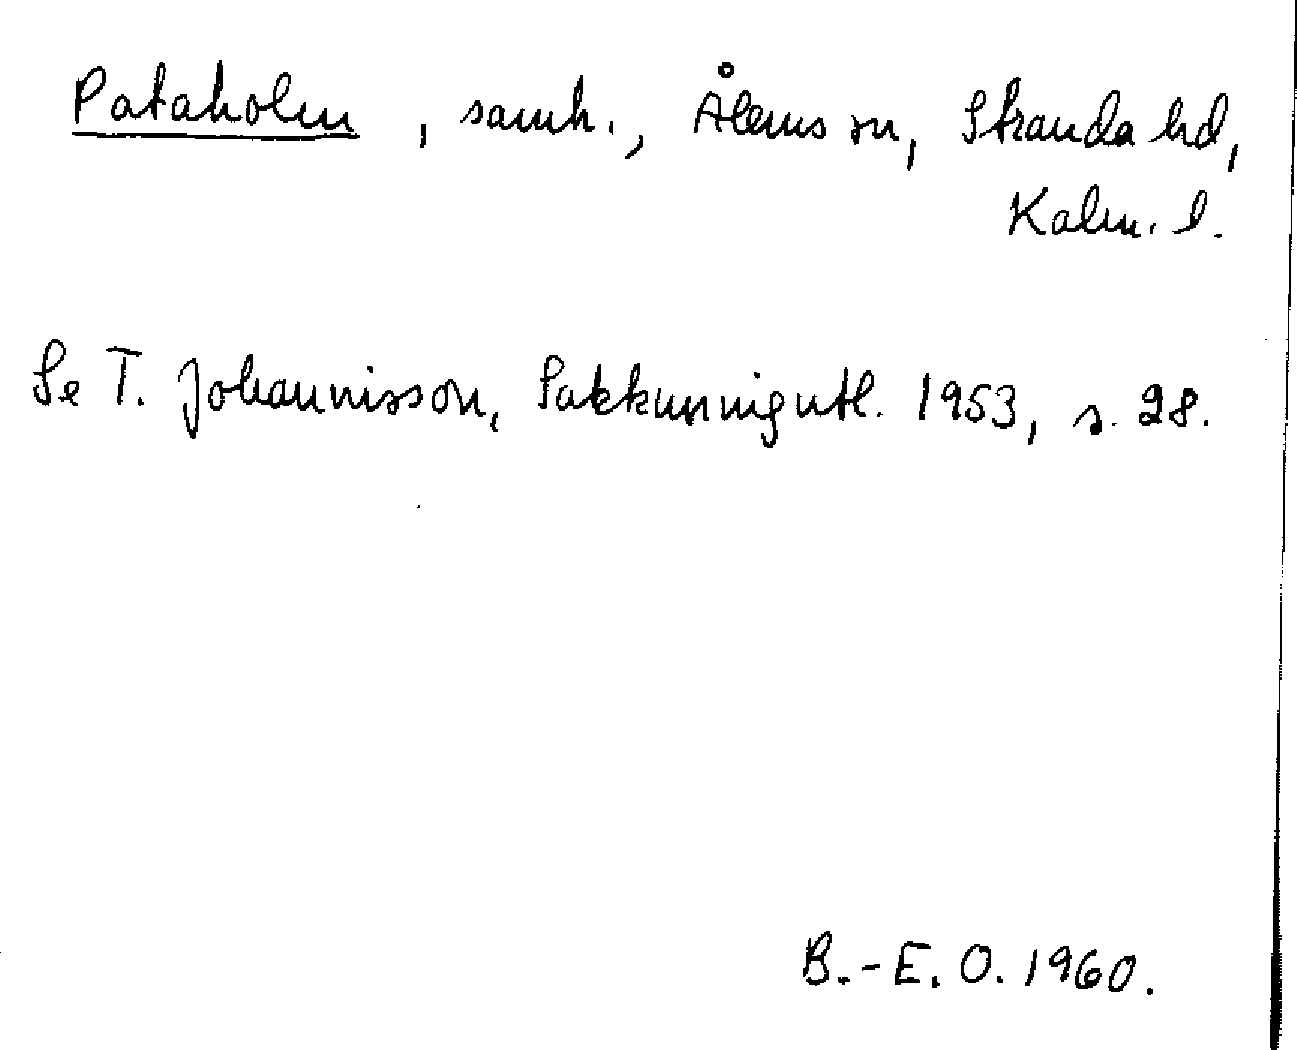 Pataholm, samh., Ålems sn, Stranda hd,
Kalm. l.
Se T. Johannisson, Sakkunnigutl. 1953, s. 28.
B.-E. O. 1960.